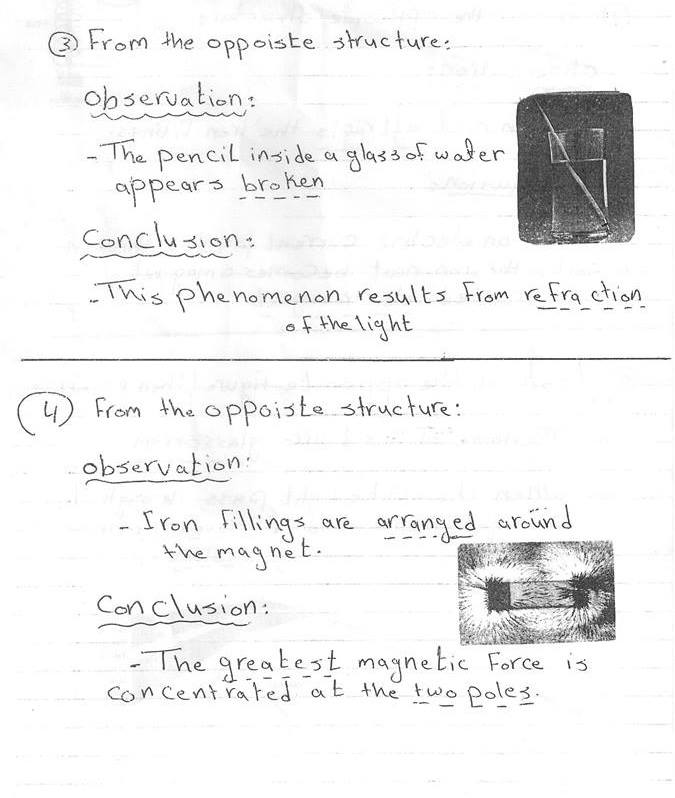 3 From the oppoiste structure:
Observation:
- The pencil inside a glass of water
appears broken
Conclusion:
- This phenomenon results From refraction
of the light
4 From the oppoiste structure:
observation:
- Iron fillings are arranged around
the magnet.
Conclusion:
- The greatest magnetic Force is
concentrated at the two poles.